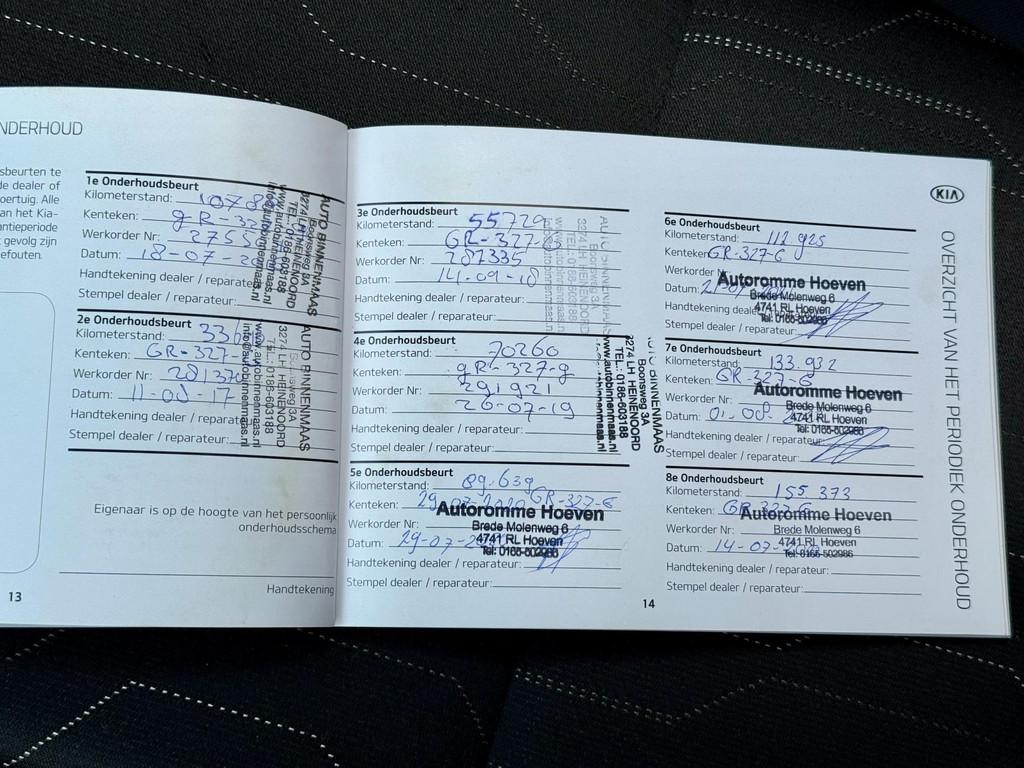 NDERHOUD
sbeurten te
de dealer of
oertuig. Alle
an het Kia-
antieperiode
gevolg zijn
efouten.
13
1e Onderhoudsbeurt
Kilometerstand:
Kenteken: gR-32
Werkorder Nr:
Datum: 18-07-
Handtekening dealer / reparateur:
Stempel dealer / reparateur:
AUTO BINNENMAAS
Boonsweg 3A
3274 LH HEINENOORD
TEL.: 0186-603188
www.autobinnenmaas.nl
info@autobinnenmaas.nl
2e Onderhoudsbeurt
Kilometerstand:
Kenteken: GR-327-
Werkorder Nr:
Datum: 11-08-17
Handtekening dealer / reparateur:
Stempel dealer / reparateur:
AUTO BINNENMAAS
Boonsweg 3A
3274 LH HEINENOORD
TEL.: 0186-603188
www.autobinnenmaas.nl
info@autobinnenmaas.nl
Eigenaar is op de hoogte van het persoonlijk
onderhoudsschema
Handtekening
3e Onderhoudsbeurt
Kilometerstand: 55729
Kenteken: GR-327-
Werkorder Nr: 287335
Datum: 14-09-18
Handtekening dealer / reparateur:
Stempel dealer / reparateur:
AUTO BINNENMAAS
Boonsweg 3A
3274 LH HEINENOORD
TEL.: 0186-603188
www.autobinnenmaas.nl
4e Onderhoudsbeurt
Kilometerstand: 70260
Kenteken: gR-327-g
Werkorder Nr: 291921
Datum: 26-07-19
Handtekening dealer / reparateur:
Stempel dealer / reparateur:
BINNENMAAS
Boonsweg 3A
3274 LH HEINENOORD
TEL.: 0186-603188
www.autobinnenmaas.nl
5e Onderhoudsbeurt
Kilometerstand: 89.639
Kenteken: 29-07-2020 GR-327-G
Werkorder Nr:
Datum: 29-07-
Handtekening dealer / reparateur:
Stempel dealer / reparateur:
Autoromme Hoeven
Brede Molenweg 6
4741 RL Hoeven
Tel: 0165-502986
14
6e Onderhoudsbeurt
Kilometerstand: 112 925
Kenteken: GR-327-G
Werkorder Nr:
Datum:
Handtekening dealer / reparateur:
Stempel dealer / reparateur:
Autoromme Hoeven
Brede Molenweg 6
4741 RL Hoeven
Tel: 0165-502986
7e Onderhoudsbeurt
Kilometerstand: 133.932
Kenteken: GR-327-G
Werkorder Nr:
Datum: 01-008-
Handtekening dealer / reparateur:
Stempel dealer / reparateur:
Autoromme Hoeven
Brede Molenweg 6
4741 RL Hoeven
Tel: 0165-502986
8e Onderhoudsbeurt
Kilometerstand: 155 373
Kenteken: GR-327-G
Werkorder Nr:
Datum: 14-07-
Handtekening dealer / reparateur:
Stempel dealer / reparateur:
Autoromme Hoeven
Brede Molenweg 6
4741 RL Hoeven
Tel: 0165-502986
KIA
OVERZICHT VAN HET PERIODIEK ONDERHOUD